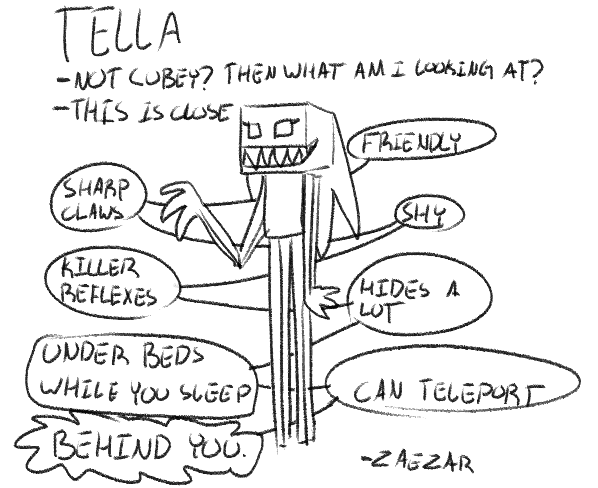 TELLA
-NOT CUBEY? THEN WHAT AM I LOOKING AT?
-THIS IS CLOSE
FRIENDLY
SHARP
CLAWS
SHY
KILLER
REFLEXES
HIDES A
LOT
UNDER BEDS
WHILE YOU SLEEP
CAN TELEPORT
BEHIND YOU.
-ZAEZAR